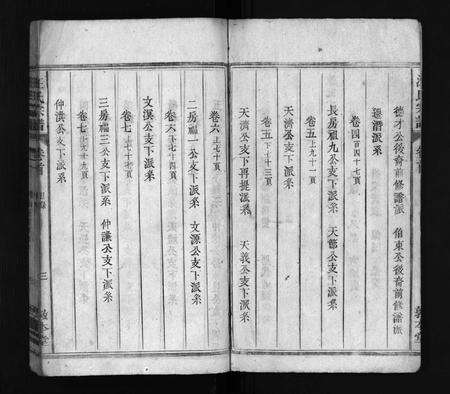 德才公後裔前修譜派　伯東公後裔前修譜派
遷潛派系
卷四百四十七頁
長房祖九公支下派系　天節公支下派系
卷五上九十一頁
天濟公支下派系
卷五下十三頁
天濟公支下再提派系　天義公支下派系
卷六上七十頁
二房福二公支下派系　文源公支下派系
卷六下七十四頁
文漢公支下派系
卷七上七十頁
三房福三公支下派系　仲謙公支下派系
卷七下六十九頁
仲洪公支下派系
氏宗譜
卷首
三
敦本堂